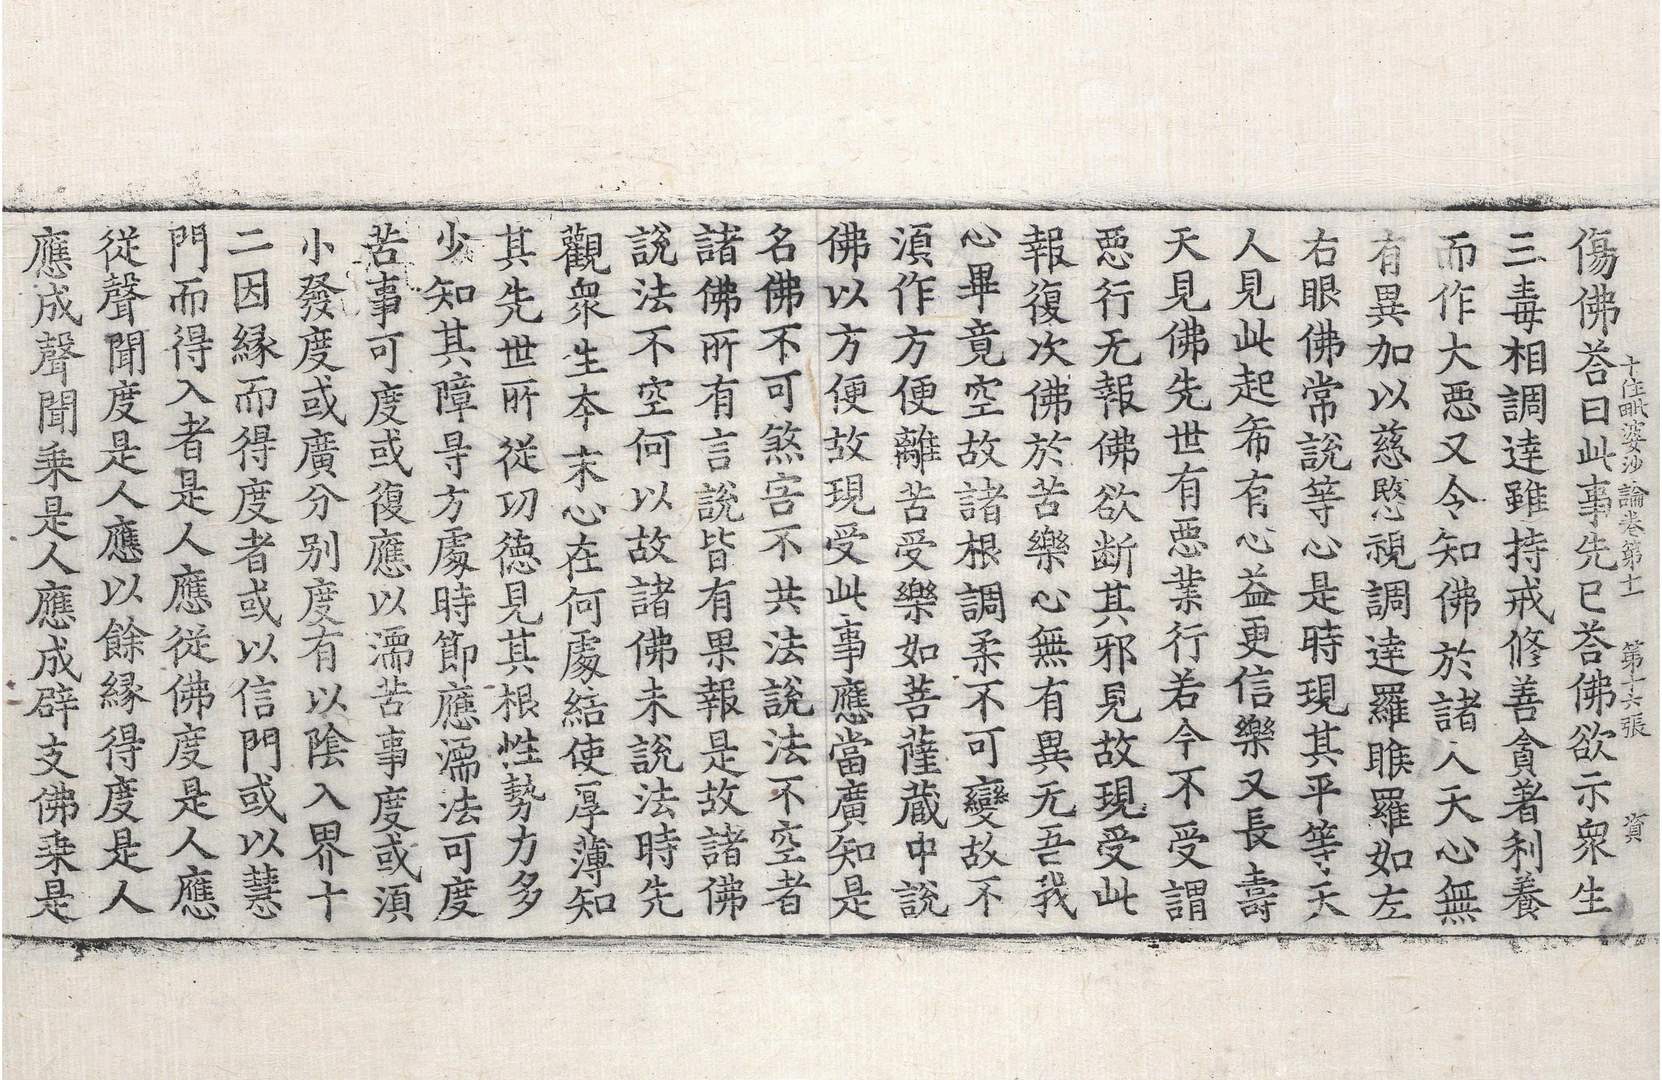 十住毗婆沙論卷第十一　第十六張　資
傷佛荅曰此事先已荅佛欲示衆生
三毒相調達雖持戒修善貪著利養
而作大惡又令知佛於諸人天心無
有異加以慈愍視調達羅睺羅如左
右眼佛常說等心是時現其平等天
人見此起希有心益更信樂又長壽
天見佛先世有惡業行若今不受謂
惡行无報佛欲断其邪見故現受此
報復次佛於苦樂心無有異无吾我
心畢竟空故諸根調柔不可變故不
湏作方便離苦受樂如菩薩蔵中說
佛以方便故現受此事應當廣知是
名佛不可煞害不共法說法不空者
諸佛所有言說皆有果報是故諸佛
說法不空何以故諸佛未說法時先
觀衆生夲末心在何處結使厚薄知
其先世所從功德見其根性勢力多
少知其障㝵方處時節應濡法可度
苦事可度或復應以濡苦事度或湏
小發度或廣分别度有以陰入界十
二因縁而得度者或以信門或以慧
門而得入者是人應從佛度是人應
從聲聞度是人應以餘縁得度是人
應成聲聞乗是人應成辟支佛乗是